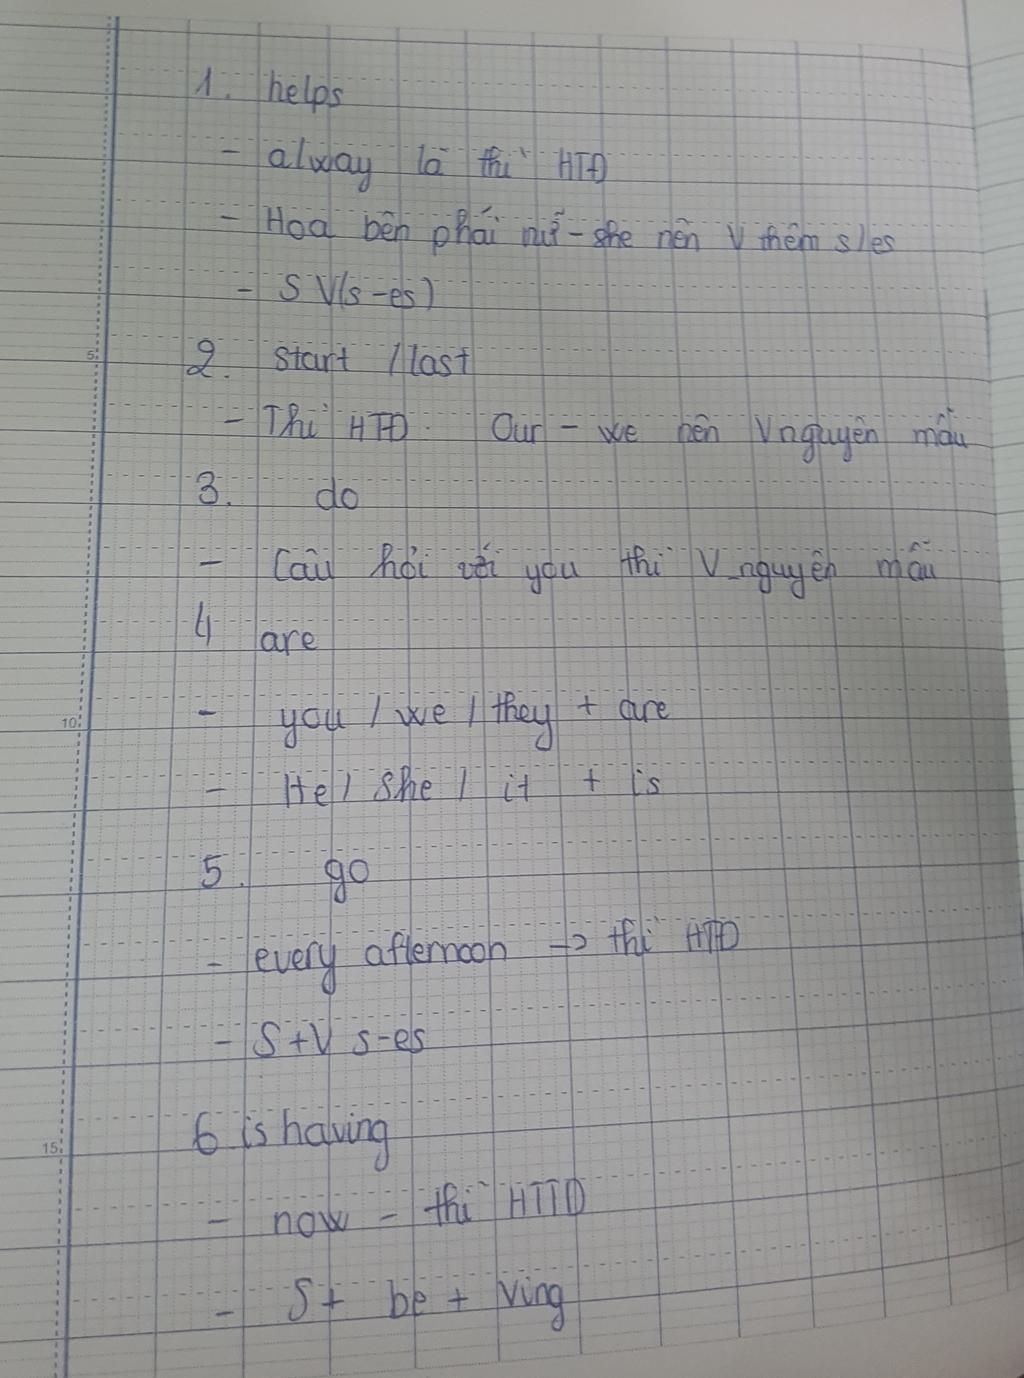 1. helps
- alway là thì HTĐ
- Hoa bên phái nữ - she nên V thêm s/es
- S V(s-es)
5
2. start / last
- Thì HTĐ. Our - we nên V nguyên mẫu
3. do
- Câu hỏi với you thì V_nguyên mẫu
4 are
10
- you / we / they + are
- He / she / it + is
5. go
- every afternoon -> thì HTĐ
- S+V s-es
15
6 is having
- now - thì HTTD
- S + be + Ving